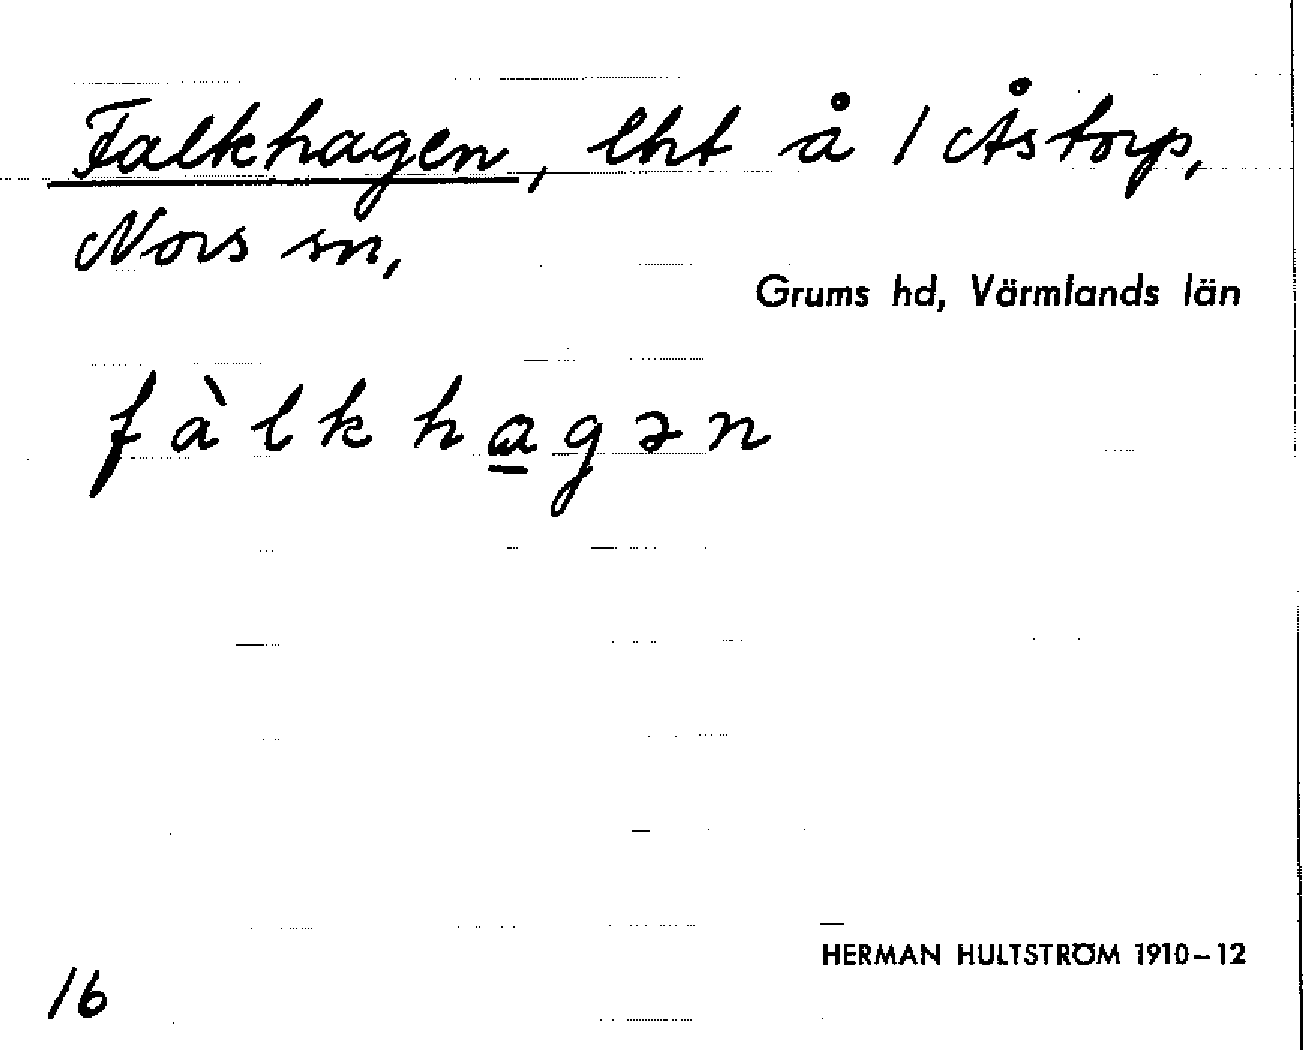 Falkhagen, lht å 1 Åstorp,
Nors sn,
Grums hd, Värmlands län
fàlkha̲gən
HERMAN HULTSTRÖM 1910–12
16